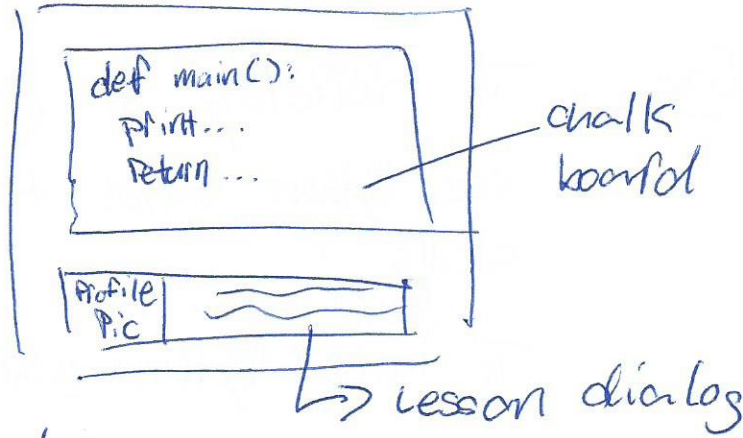 def main():
print...
return...
chalk
board
Profile
Pic
lesson dialog